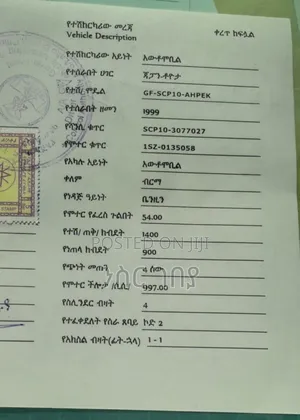 የተሽከርካሪው መረጃ
Vehicle Description
ቀረጥ ከፍሏል
የተሽከርካሪው አይነት አውቶሞቢል
የተሰራበት ሀገር ጃፓን-ቶዮታ
የተሽ/ ሞዴል GF-SCP10-AHPEK
የተሰራበት ዘመን 1999
የሻንሲ ቁጥር SCP10-3077027
የሞተር ቁጥር 1SZ-0135058
የአካሉ አይነት አውቶሞቢል
ቀለም ብርማ
የነዳጅ ዓይነት ቤንዚን
የሞተር ፈረስ ጉልበት 54.00
የተሽ/ ጠቅ/ ክብደት 1400
የነጠላ ክብደት 900
የጭነት መጠን 4 ሰው
የሞተር ችሎታ /ሲሲ/ 997.00
የሲሊንደር ብዛት 4
የተፈቀደለት የስራ ጸባይ ኮድ 2
የአክስል ብዛት(ፊት-ኋላ) 1-1
POSTED ON JIJI